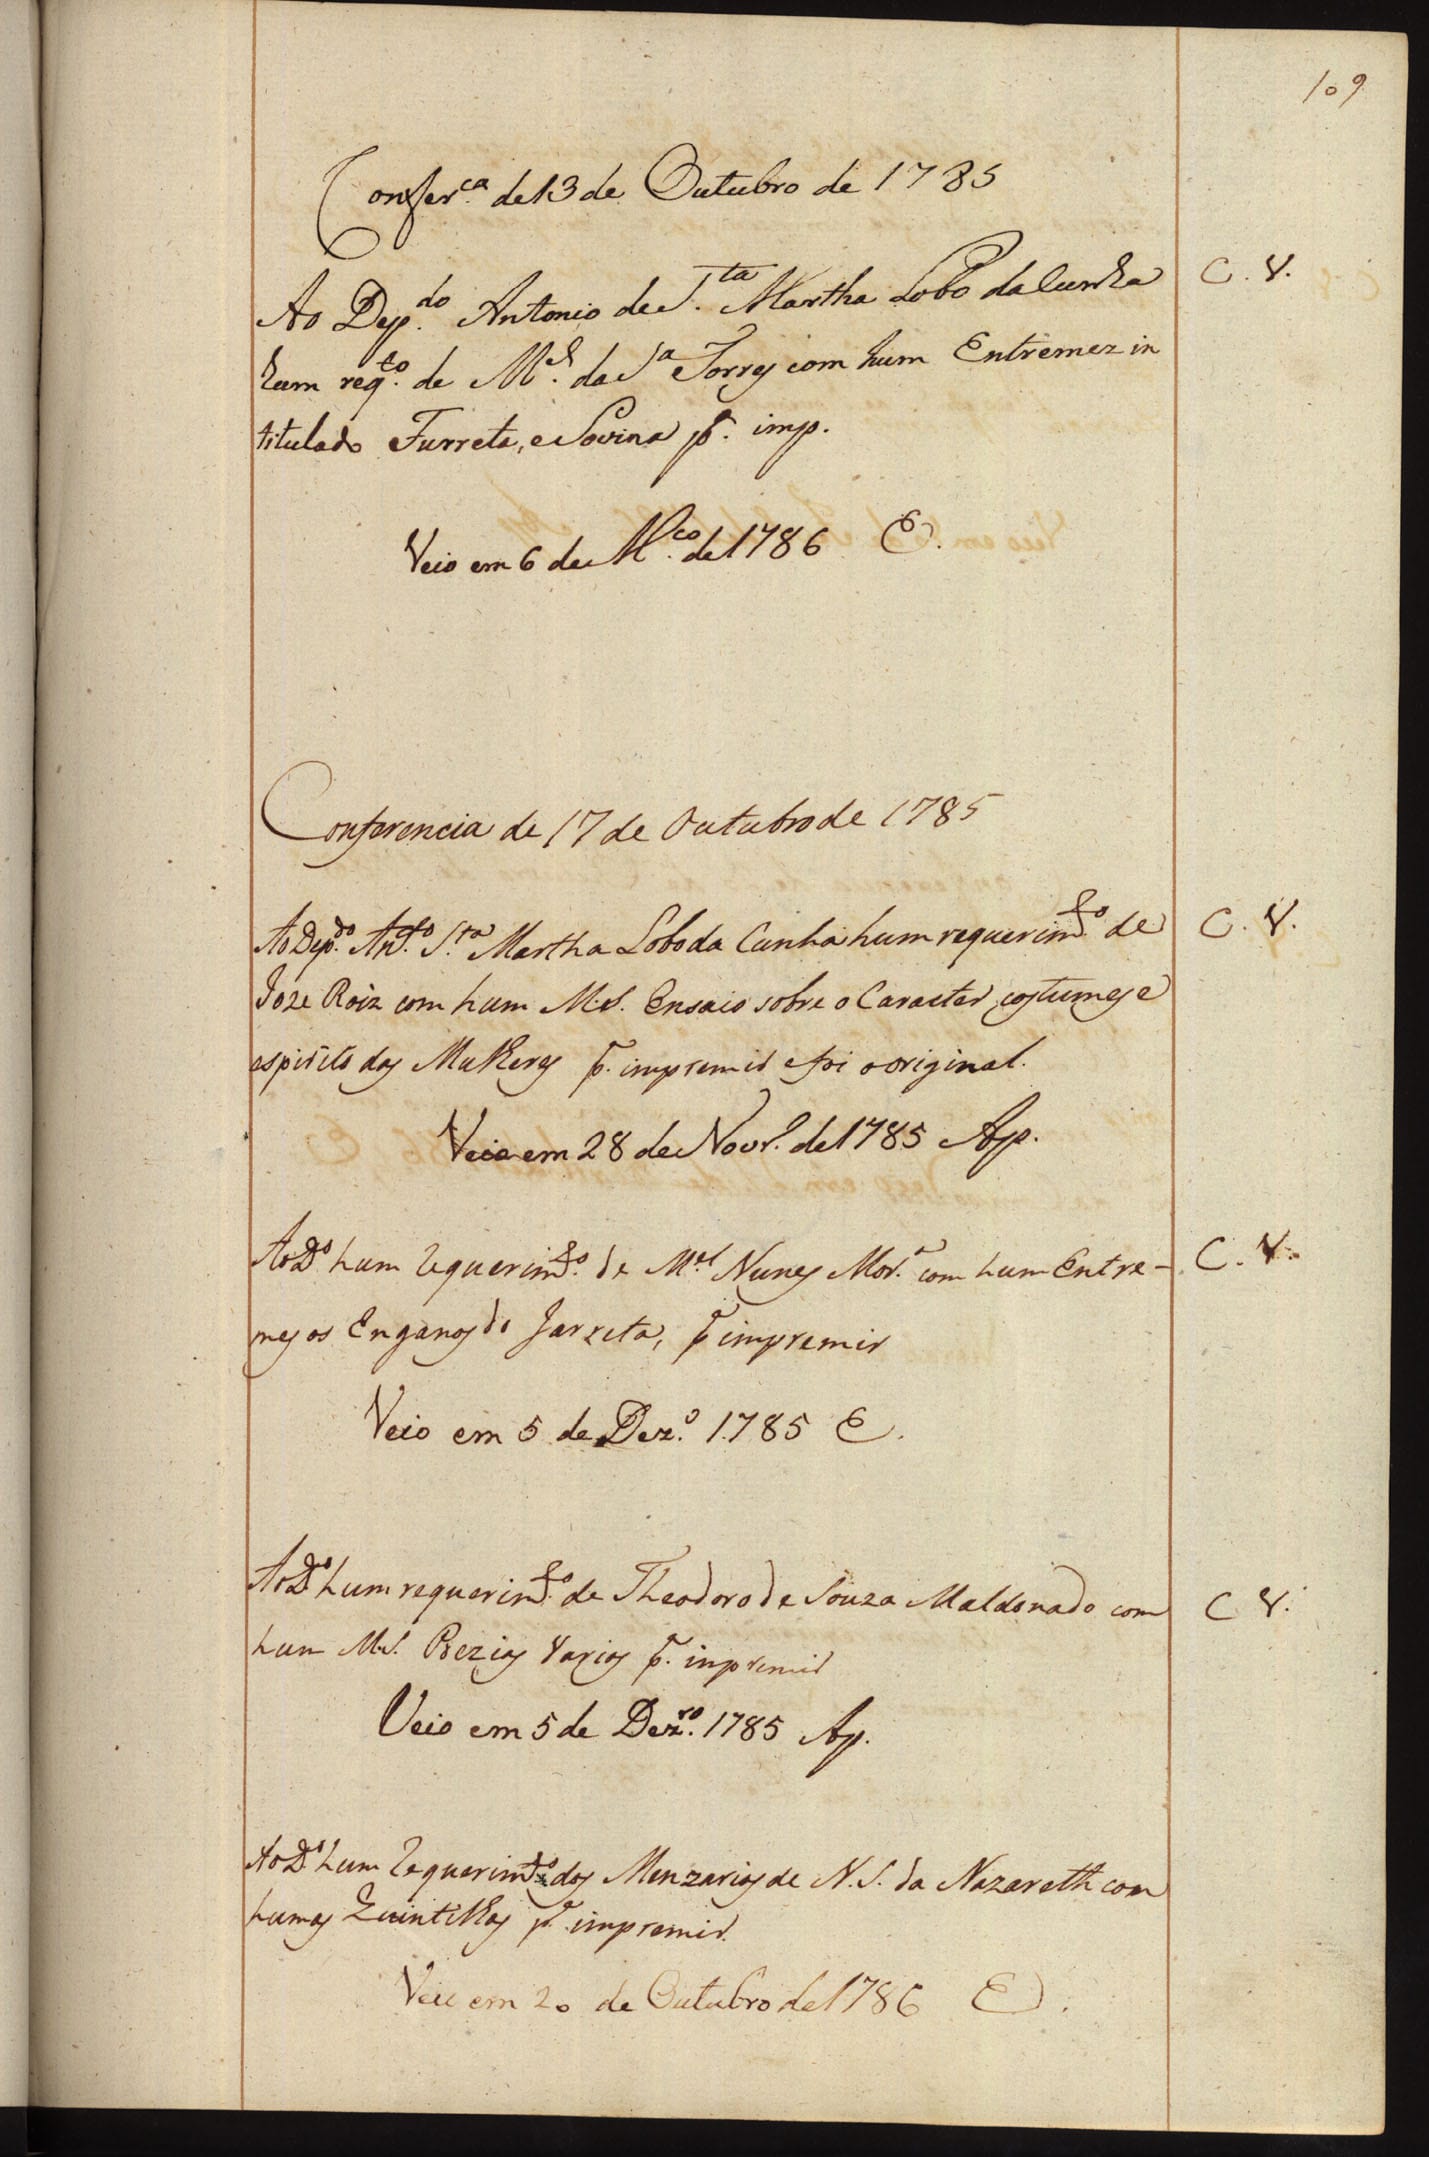 109
Confer.ca de 13 de Outubro de 1785
Ao Dep.do Antonio de S.ta Martha Lobo da Cunha C. V.
hum req.to de M.el da S.a Torres com hum Entremez in
titulado Furreta, e Sovina p.a imp.
Veio em 6 de M.co de 1786 E.
Conferencia de 17 de Outubro de 1785
Ao Dep.do Ant.o S.ta Martha Lobo da Cunha hum requerim.to de C. V.
Joze Roiz com hum M.S. Ensaio sobre o Caracter, costumes e
espirito das Mulheres p.a impremir e foi o original.
Veio em 28 de Novr.o de 1785 Ap.
Ao D.o hum requerim.to de M.el Nunes Mor.a com hum Entre- C. V.
mes os Enganos do Jarreta, p.a impremir
Veio em 5 de Dez.o 1785 E.
Ao D.o hum requerim.to de Theodoro de Souza Maldonado com C V.
hum M.S. Poezias Varias p.a inpremir
Veio em 5 de Dez.ro 1785 Ap.
Ao D.o hum requerim.to dos de N. S. da Nazareth com
humas Quintilhas p.a impremir.
Veio em 20 de Outubro de 1786 E.